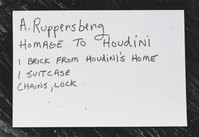 A. Ruppensberg
HOMAGE TO HOUDINI
1 BRICK FROM HOUDINI'S HOME
1 SUITCASE
CHAINS, LOCK